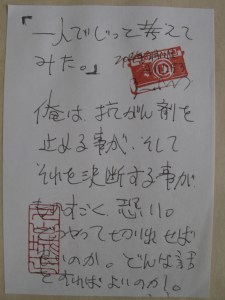 「一人でじっと考えて
みた。」
俺は、抗がん剤を
止める事が、そして
それを決断する事が
ものすごく恐い。
どうやって切り出せば
良いのか。どんな話
をすればよいのか。